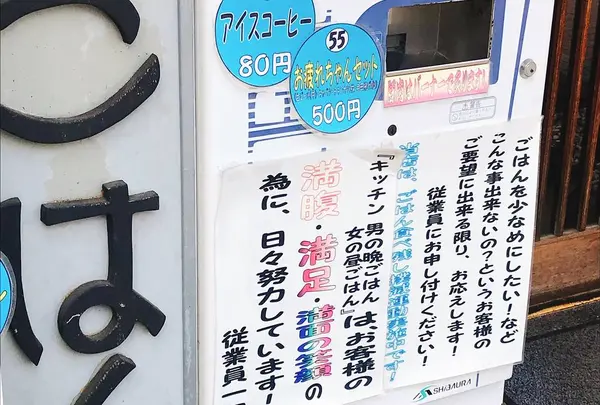 アイスコーヒー
80円
55
お疲れちゃんセット
500円
ごはんを少なめにしたい！など
こんな事出来ないの？というお客様の
ご要望に出来る限り、お応えします！
従業員にお申し付けください！
当店は、ごはん食べ残し撲滅運動実施中です！
『キッチン 男の晩ごはん
女の昼ごはん』は、お客様の
満腹・満足・満面の笑顔の
為に、日々努力しています！
従業員一
SHIBAURA
ごはん
は